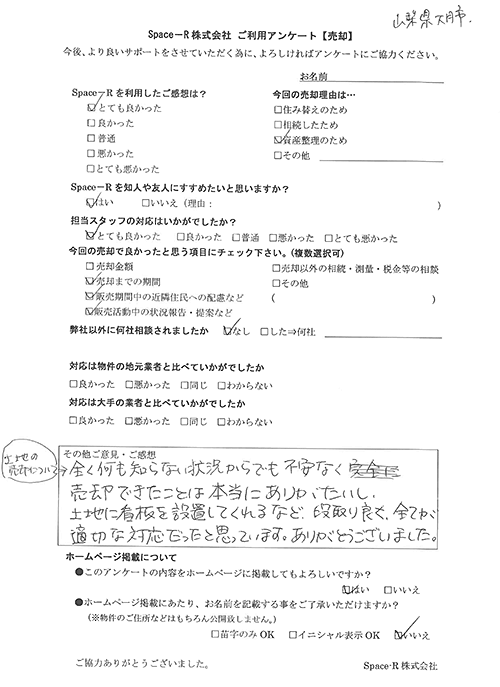 山梨県大月市.
Space－R 株式会社 ご利用アンケート【売却】
今後、より良いサポートをさせていただく為に、よろしければアンケートにご協力ください。
お名前
Space－R を利用したご感想は？
☑とても良かった
□良かった
□普通
□悪かった
□とても悪かった
今回の売却理由は…
□住み替えのため
□相続したため
☑資産整理のため
□その他
Space－R を知人や友人にすすめたいと思いますか？
☑はい □いいえ（理由： ）
担当スタッフの対応はいかがでしたか？
☑とても良かった □良かった □普通 □悪かった □とても悪かった
今回の売却で良かったと思う項目にチェック下さい。（複数選択可）
□売却金額
☑売却までの期間
☑販売期間中の近隣住民への配慮など
☑販売活動中の状況報告・提案など
□売却以外の相続・測量・税金等の相談
□その他
（ ）
弊社以外に何社相談されましたか ☑なし □した⇒何社
対応は物件の地元業者と比べていかがでしたか
□良かった □悪かった □同じ □わからない
対応は大手の業者と比べていかがでしたか
□良かった □悪かった □同じ □わからない
その他ご意見・ご感想
土地の
売却について
全く何も知らない状況からでも不安なく
売却できたことは本当にありがたいし、
土地に看板を設置してくれるなど、段取り良く、全てが
適切な対応だったと思っています。ありがとうございました。
ホームページ掲載について
●このアンケートの内容をホームページに掲載してもよろしいですか？
☑はい □いいえ
●ホームページ掲載にあたり、お名前を記載する事をご了承いただけますか？
（※物件のご住所などはもちろん公開致しません。）
□苗字のみ OK □イニシャル表示 OK ☑いいえ
ご協力ありがとうございました。
Space-R 株式会社